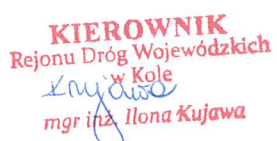 KIEROWNIK
Rejonu Dróg Wojewódzkich
w Kole
Kujawa
mgr inż. Ilona Kujawa